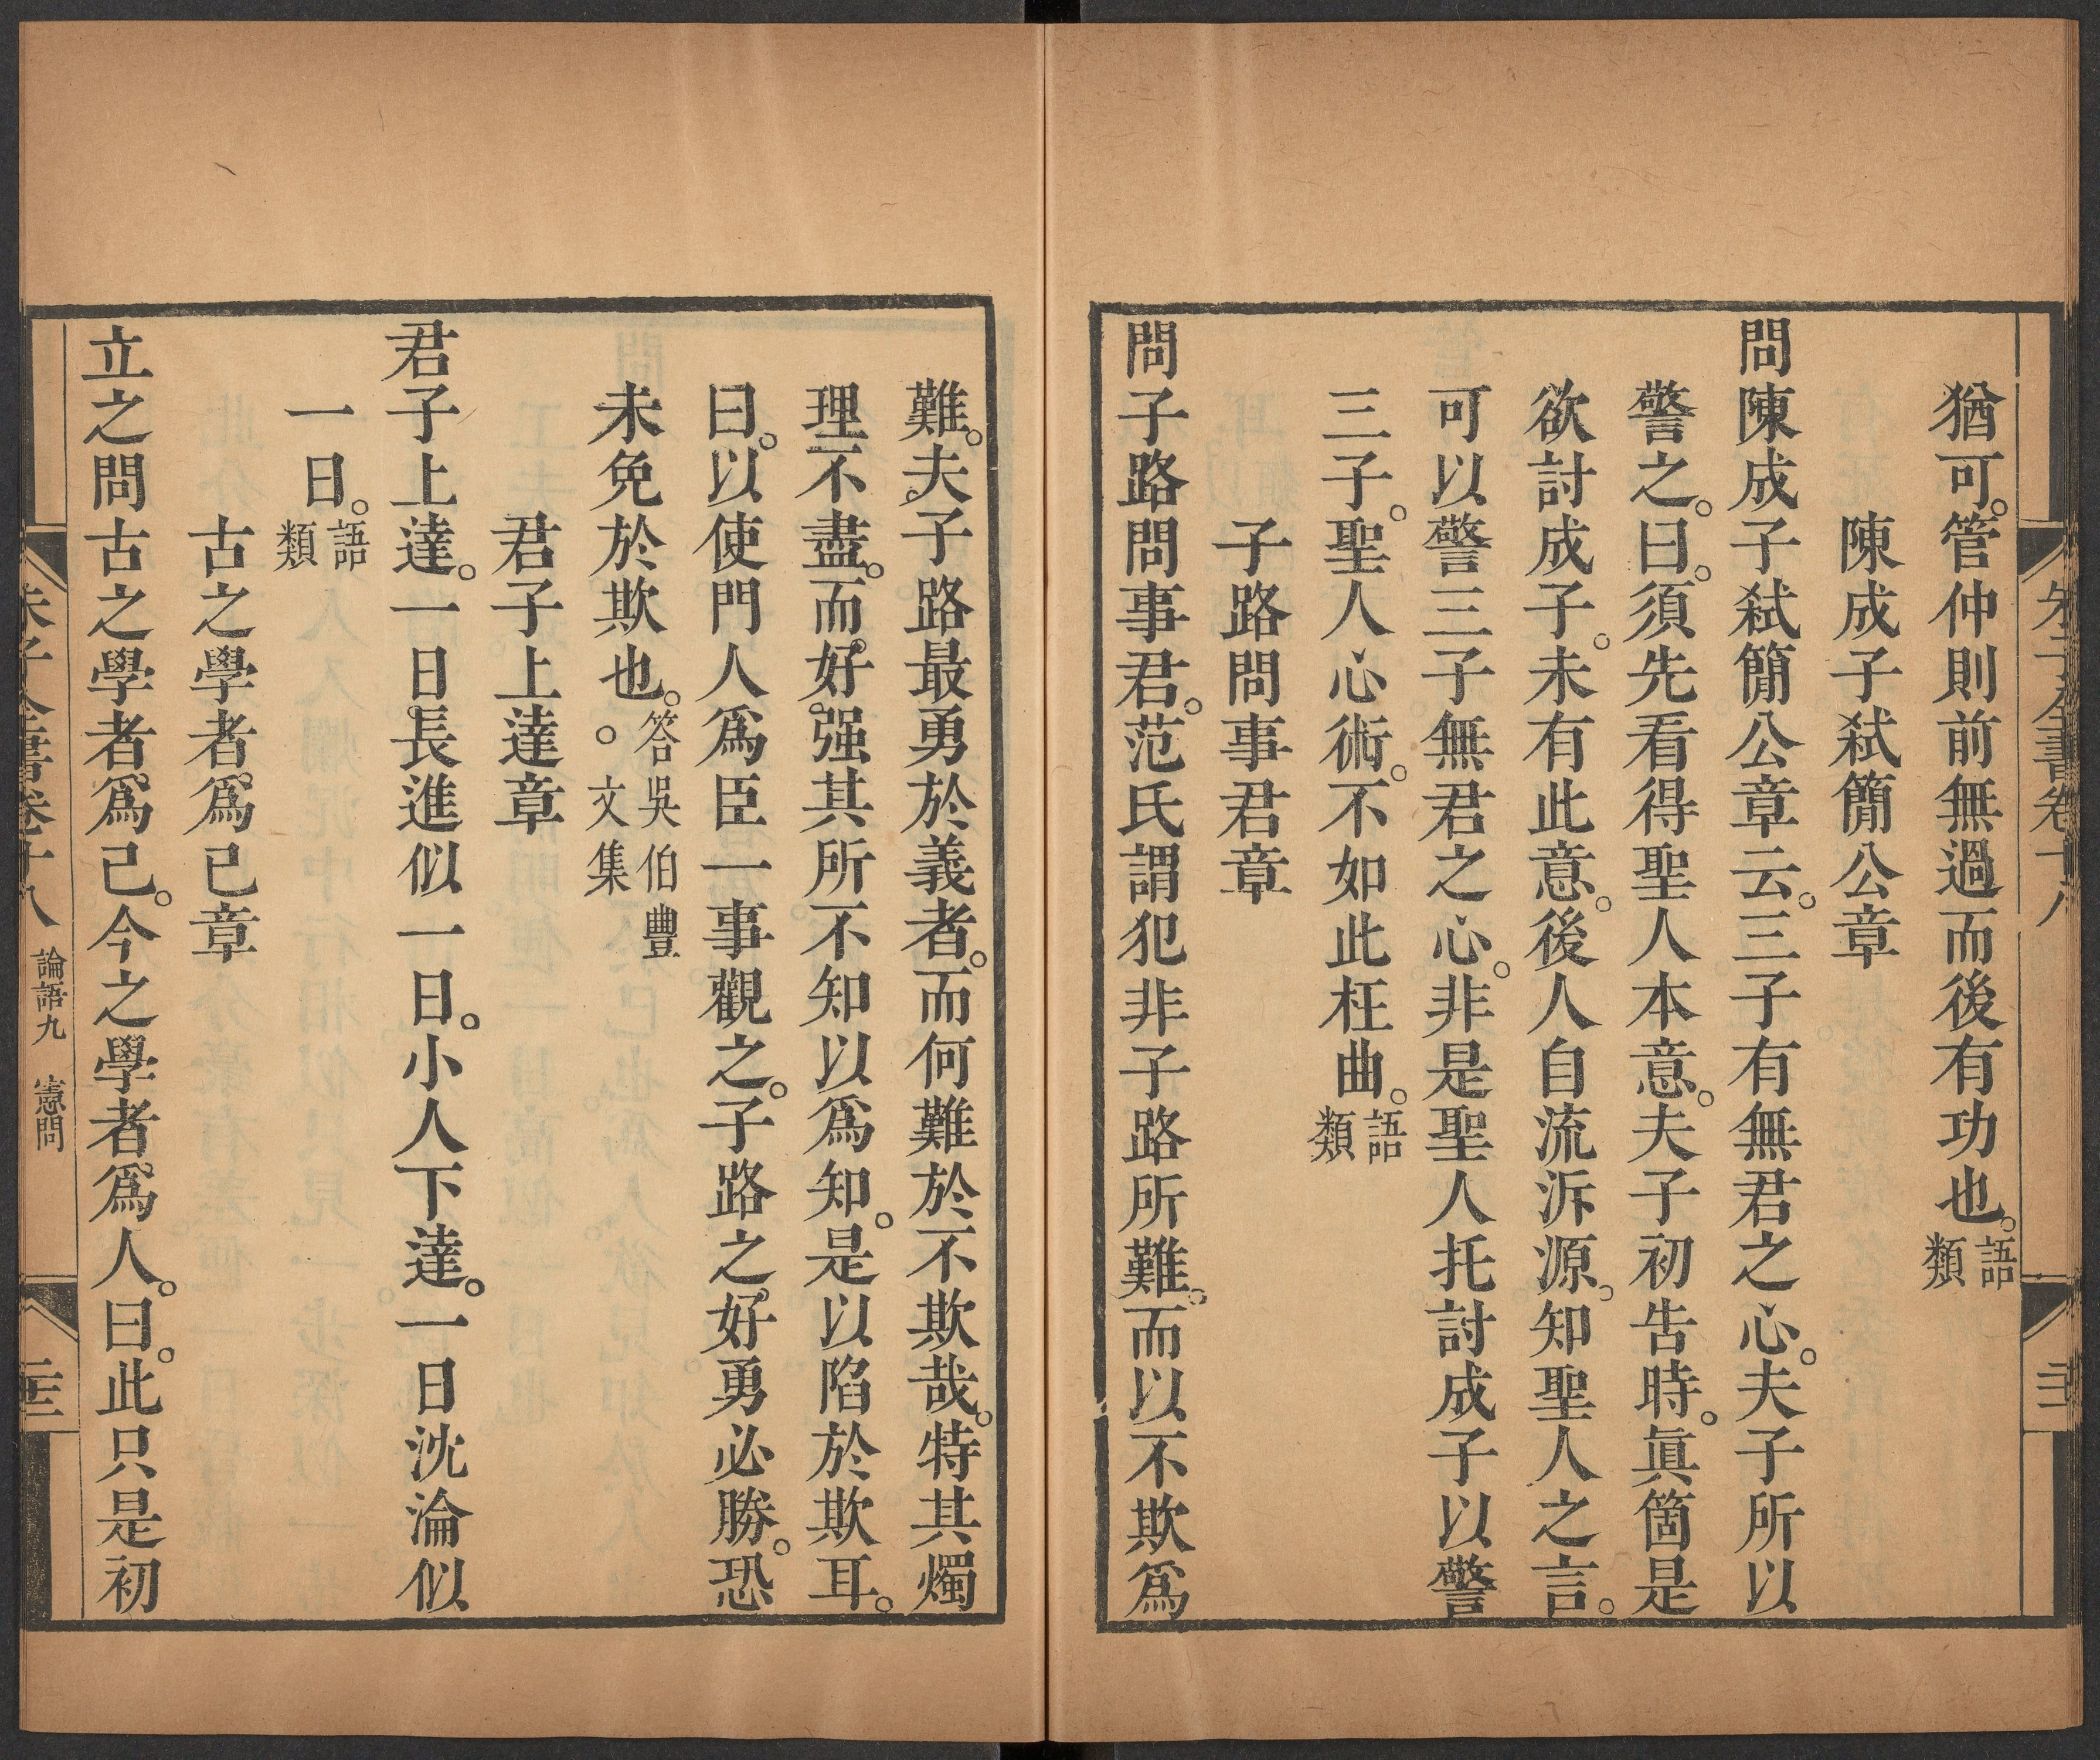 猶可。管仲則前無過而後有功也。語類
陳成子弑簡公章
問陳成子弑簡公章云。三子有無君之心。夫子所以
警之。曰。須先看得聖人本意。夫子初告時。眞箇是
欲討成子。未有此意。後人自流泝源。知聖人之言。
可以警三子無君之心。非是聖人托討成子以警
三子。聖人心術。不如此枉曲。語類
子路問事君章
問子路問事君。范氏謂犯非子路所難。而以不欺爲
難。夫子路最勇於義者。而何難於不欺哉。特其燭
理不盡。而好强其所不知以爲知。是以陷於欺耳。
曰。以使門人爲臣一事觀之。子路之好勇必勝。恐
未免於欺也。答吳伯豐。文集
君子上達章
君子上達。一日長進似一日。小人下達。一日沈淪似
一日。語類
古之學者爲己章
立之問古之學者爲己。今之學者爲人。曰。此只是初
朱子全書卷十八 論語九 憲問